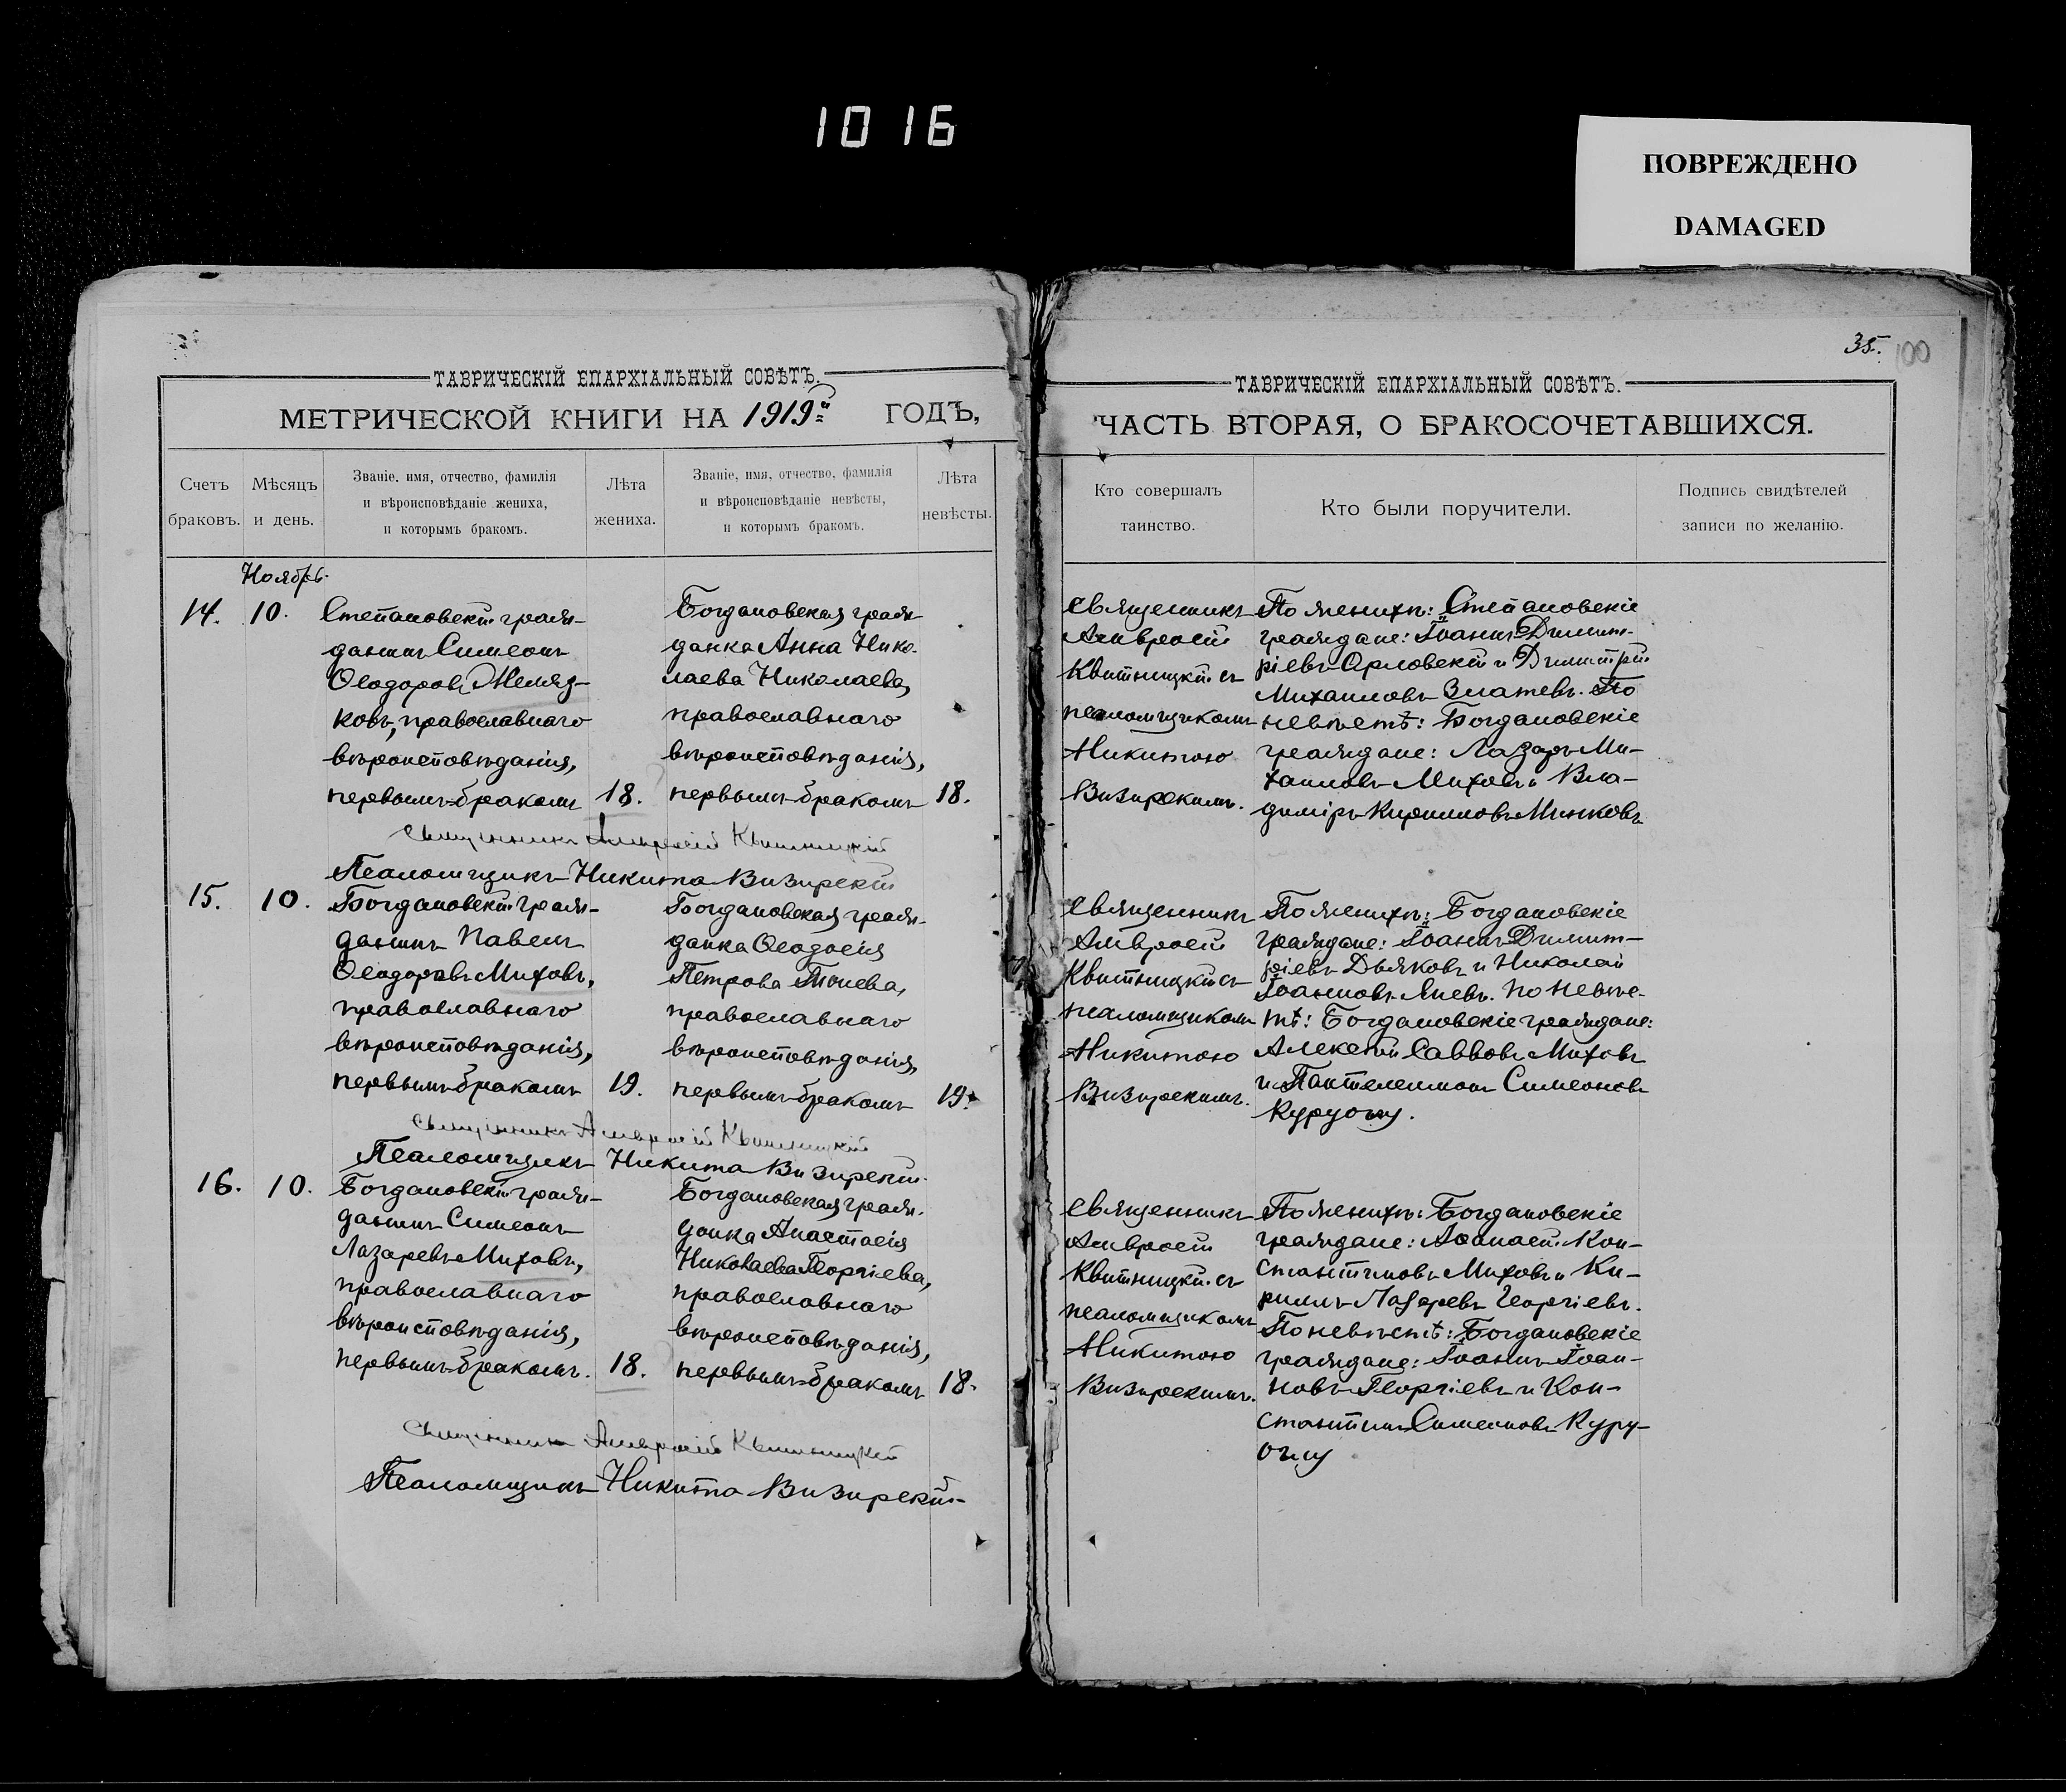 1016
ПОВРЕЖДЕНО
DAMAGED
35.
100
ТАВРИЧЕСКІЙ ЕПАРХІАЛЬНЫЙ СОВѢТЪ.
МЕТРИЧЕСКОЙ КНИГИ НА 1919й ГОДЪ,
Счетъ браковъ.
Мѣсяцъ и день.
Званіе, имя, отчество, фамилія
и вѣроисповѣданіе жениха,
и которымъ бракомъ.
Лѣта жениха.
Званіе, имя, отчество, фамилія
и вѣроисповѣданіе невѣсты,
и которымъ бракомъ.
Лѣта невѣсты.
Ноябрь.
14.
10.
Степановскій граж-
данинъ Симеонъ
Ѳеодоровъ
ковъ, православнаго
вѣроисповѣданія,
первымъ бракомъ
18.
Богдановская граж-
данка Анна Нико-
лаева Николаева,
православнаго
вѣроисповѣданія,
первымъ бракомъ
18.
Священникъ Амвросій Квитницкій
Псаломщикъ Никита Визирскій
15.
10.
Богдановскій граж-
данинъ Павелъ
Ѳеодоровъ Миховъ,
православнаго
вѣроисповѣданія,
первымъ бракомъ
19.
Богдановская граж-
данка Ѳеодосія
Петрова
православнаго
вѣроисповѣданія,
первымъ бракомъ
19.
Священникъ Амвросій Квитницкій
Псаломщикъ Никита Визирскій.
16.
10.
Богдановскій граж-
данинъ Симеонъ
Лазаревъ Миховъ,
православнаго
вѣроисповѣданія,
первымъ бракомъ.
18.
Богдановская граж-
данка Анастасія
Николаева Георгіева,
православнаго
вѣроисповѣданія,
первымъ бракомъ
18.
Священникъ Амвросій Квитницкій
Псаломщикъ Никита Визирскій
ТАВРИЧЕСКІЙ ЕПАРХІАЛЬНЫЙ СОВѢТЪ.
ЧАСТЬ ВТОРАЯ, О БРАКОСОЧЕТАВШИХСЯ.
Кто совершалъ таинство.
Кто были поручители.
Подпись свидѣтелей записи по желанію.
Священникъ
Амвросій
Квитницкій съ
псаломщикомъ
Никитою
Визирскимъ.
По женихѣ: Степановскіе
граждане: Іоаннъ Димит-
ріевъ Орловскій и Димитрій
Михаиловъ Златевъ. По
невѣстѣ: Богдановскіе
граждане: Лазарь Ми-
хаиловъ Миховъ и Вла-
диміръ Кирилловъ Минковъ
Священникъ
Амвросій
Квитницкій съ
псаломщикомъ
Никитою
Визирскимъ.
По женихѣ: Богдановскіе
граждане: Іоаннъ Димит-
ріевъ Дьяковъ и Николай
Іоанновъ По невѣс-
тѣ: Богдановскіе граждане:
Алексѣй Саввовъ Миховъ
и Пантелеимонъ Симеоновъ
Куруогну.
Священникъ
Амвросій
Квитницкій съ
псаломщикомъ
Никитою
Визирскимъ.
По женихѣ: Богдановскіе
граждане: Аѳанасій Кон-
стантиновъ Миховъ и Ки-
риллъ Лазаревъ Георгіевъ.
По невѣстѣ: Богдановскіе
граждане: Іоаннъ Іоан-
новъ Георгіевъ и Кон-
стантинъ Симеоновъ Куру-
оглу